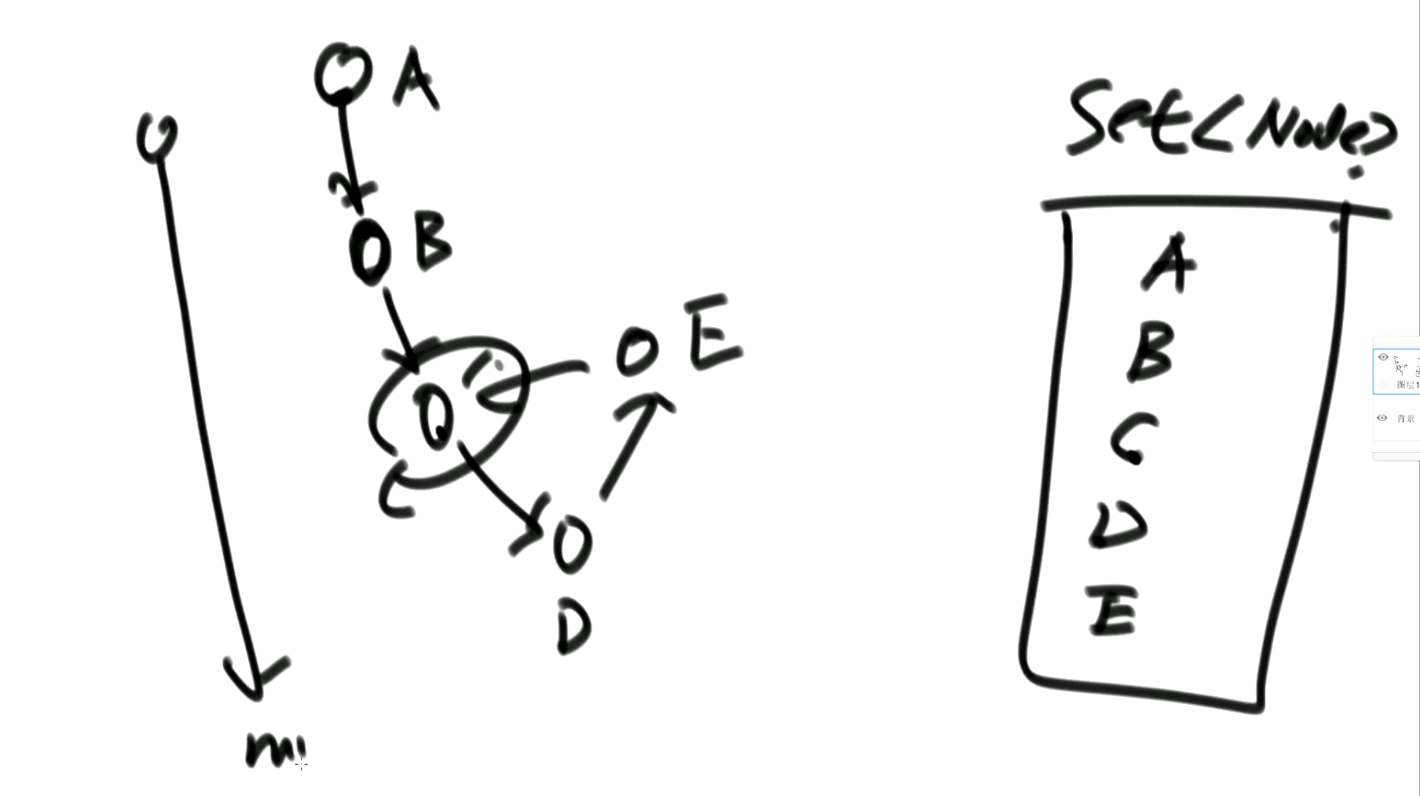 A
B
E
D
Set<Node>
A
B
C
D
E
图层1